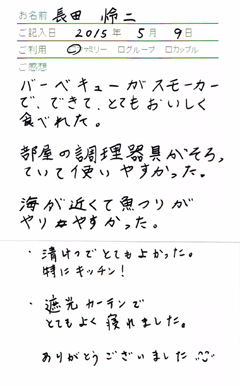 お名前 長田 怜二
ご記入日 2015年 5月 9日
ご利用 ファミリー □グループ □カップル
ご感想
バーベキューがスモーカー
で、できて、とてもおいしく
食べれた。
部屋の調理器具がそろっ
ていて使いやすかった。
海が近くて魚つりが
やりやすかった。
・清けつでとてもよかった。
特にキッチン!
・遮光カーテンで
とてもよく寝れました。
ありがとうございました